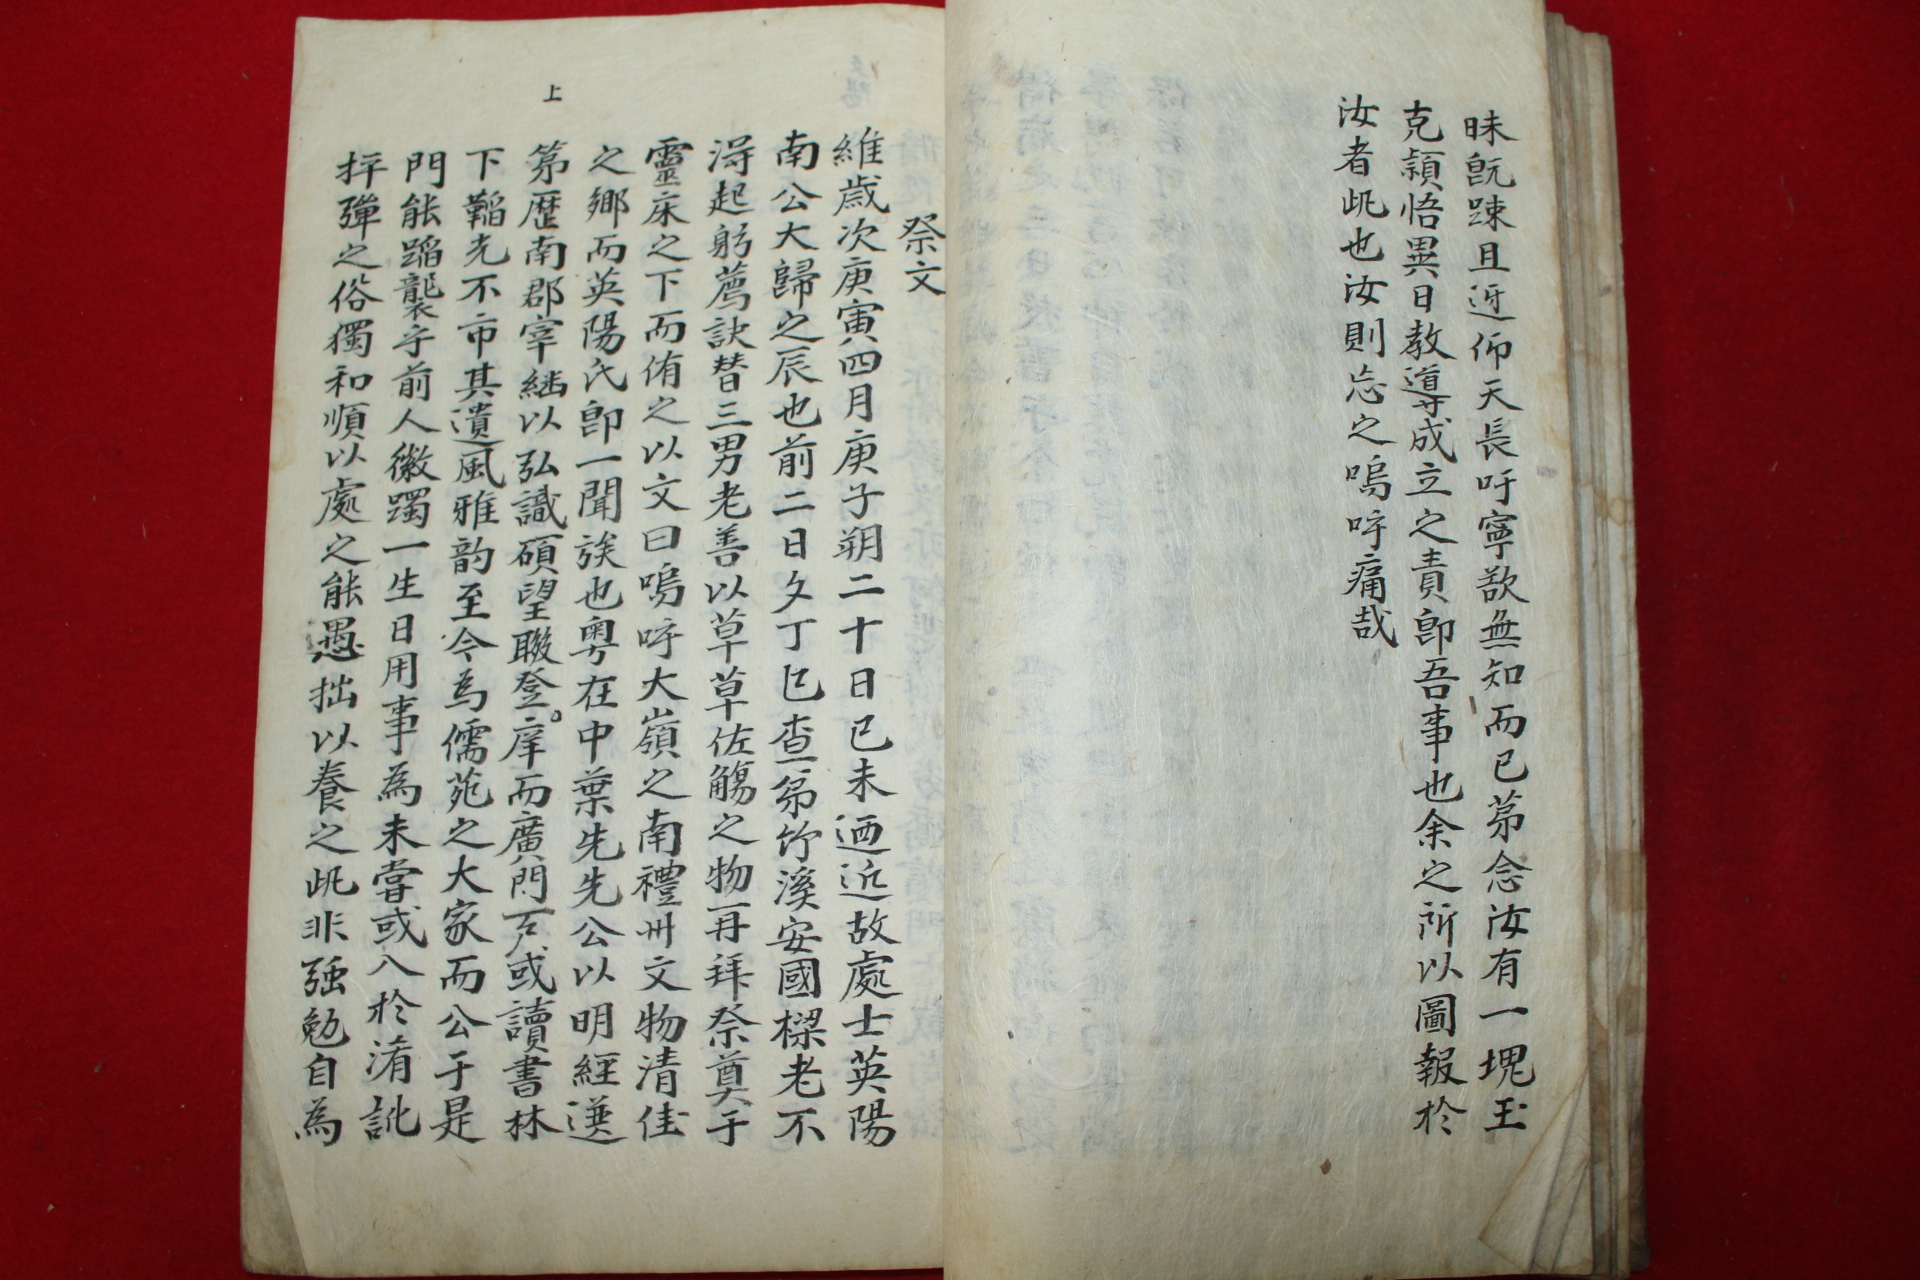 昧旣踈且近仰天長吁寧欲無知而已第念汝有一塊玉
克穎悟異日敎導成立之責卽吾事也余之所以圖報於
汝者此也汝則忘之嗚呼痛哉
祭文
維歲次庚寅四月庚子朔二十日已未迺近故處士英陽
南公大歸之辰也前二日夕丁巳查弟竹溪安國樑老不
淂起躬薦訣替三男老善以草草佐觴之物再拜祭奠于
靈床之下而侑之以文曰嗚呼大嶺之南禮州文物清佳
之鄉而英陽氏卽一聞族也粤在中葉先先公以明經選
第歷南郡宰繼以弘識碩望聯登庠而廣門戶或讀書林
下韜光不市其遺風雅韵至今為儒苑之大家而公于是
門能蹈襲乎前人徽躅一生日用事為未嘗或入於淆訛
抨彈之俗獨和順以處之能愚拙以養之此非强勉自為
上